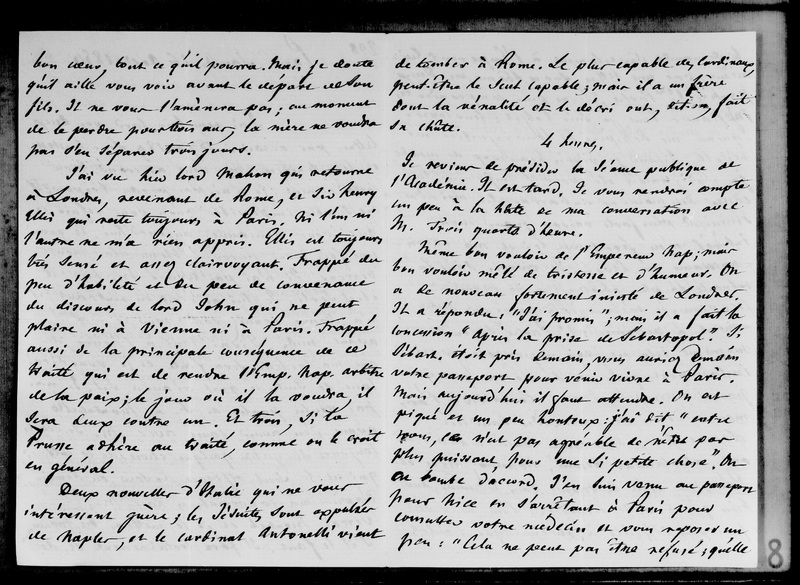 bon cœur, tout ce qu'il pourra. Mais je doute
qu'il aille vous voir avant le départ de son
fils. Il ne vous l'amènera pas; au moment
de le perdre pour trois ans, la mère ne voudra
pas s'en séparer trois jours.
J'ai vu hier lord Mahon qui retourne
à Londres, revenant de Rome, et Sir Henry
Ellis qui reste toujours à Paris. Ni l'un ni
l'autre ne m'a rien appris. Ellis est toujours
très sensé et assez clairvoyant. Frappé du
peu d'habileté et du peu de convenance
du discours de lord John qui ne peut
plaire ni à Vienne ni à Paris. Frappé
aussi de la principale conséquence de ce
traité qui est de rendre l'Emp. Nap. arbitre
de la paix; le jour où il la voudra, il
sera deux contre un. Et trois, si la
Prusse adhère au traité, comme on le croit
en général.
Deux nouvelles d'Italie qui ne vous
intéressent guère; les Jésuites sont expulsés
de Naples, et le cardinal Antonelli vient
de tomber à Rome. Le plus capable des Cardinaux,
peut-être le seul capable; mais il a un frère
dont la vénalité et le décri ont, dit-on, fait
sa chûte.
4 heures.
Je reviens de présider la Séance publique de
l'Académie. Il est tard. Je vous rendrai compte
un peu à la hâte de ma conversation avec
M. Trois quarts d'heure.
Même bon vouloir de l'Empereur Nap; mais
bon vouloir mêlé de tristesse et d'humeur. On
a de nouveau fortement insisté de Londres.
Il a répondu: "J'ai promis"; mais il a fait la
concession "après la prise de Sébastopol". Si
Sébast. étoit pris demain, vous auriez demain
votre passeport pour venir vivre à Paris.
Mais aujourd'hui il faut attendre. On est
piqué et un peu honteux: j'ai dit "entre
nous, ce n'est pas agréable de n'être pas
plus puissant pour une si petite chose". On
en tombe d'accord. J'en suis venu au passeport
pour Nice en s'arrêtant à Paris pour
consulter votre médecin et vous reposer un
peu: "Cela ne peut pas être refusé; qu'elle
8